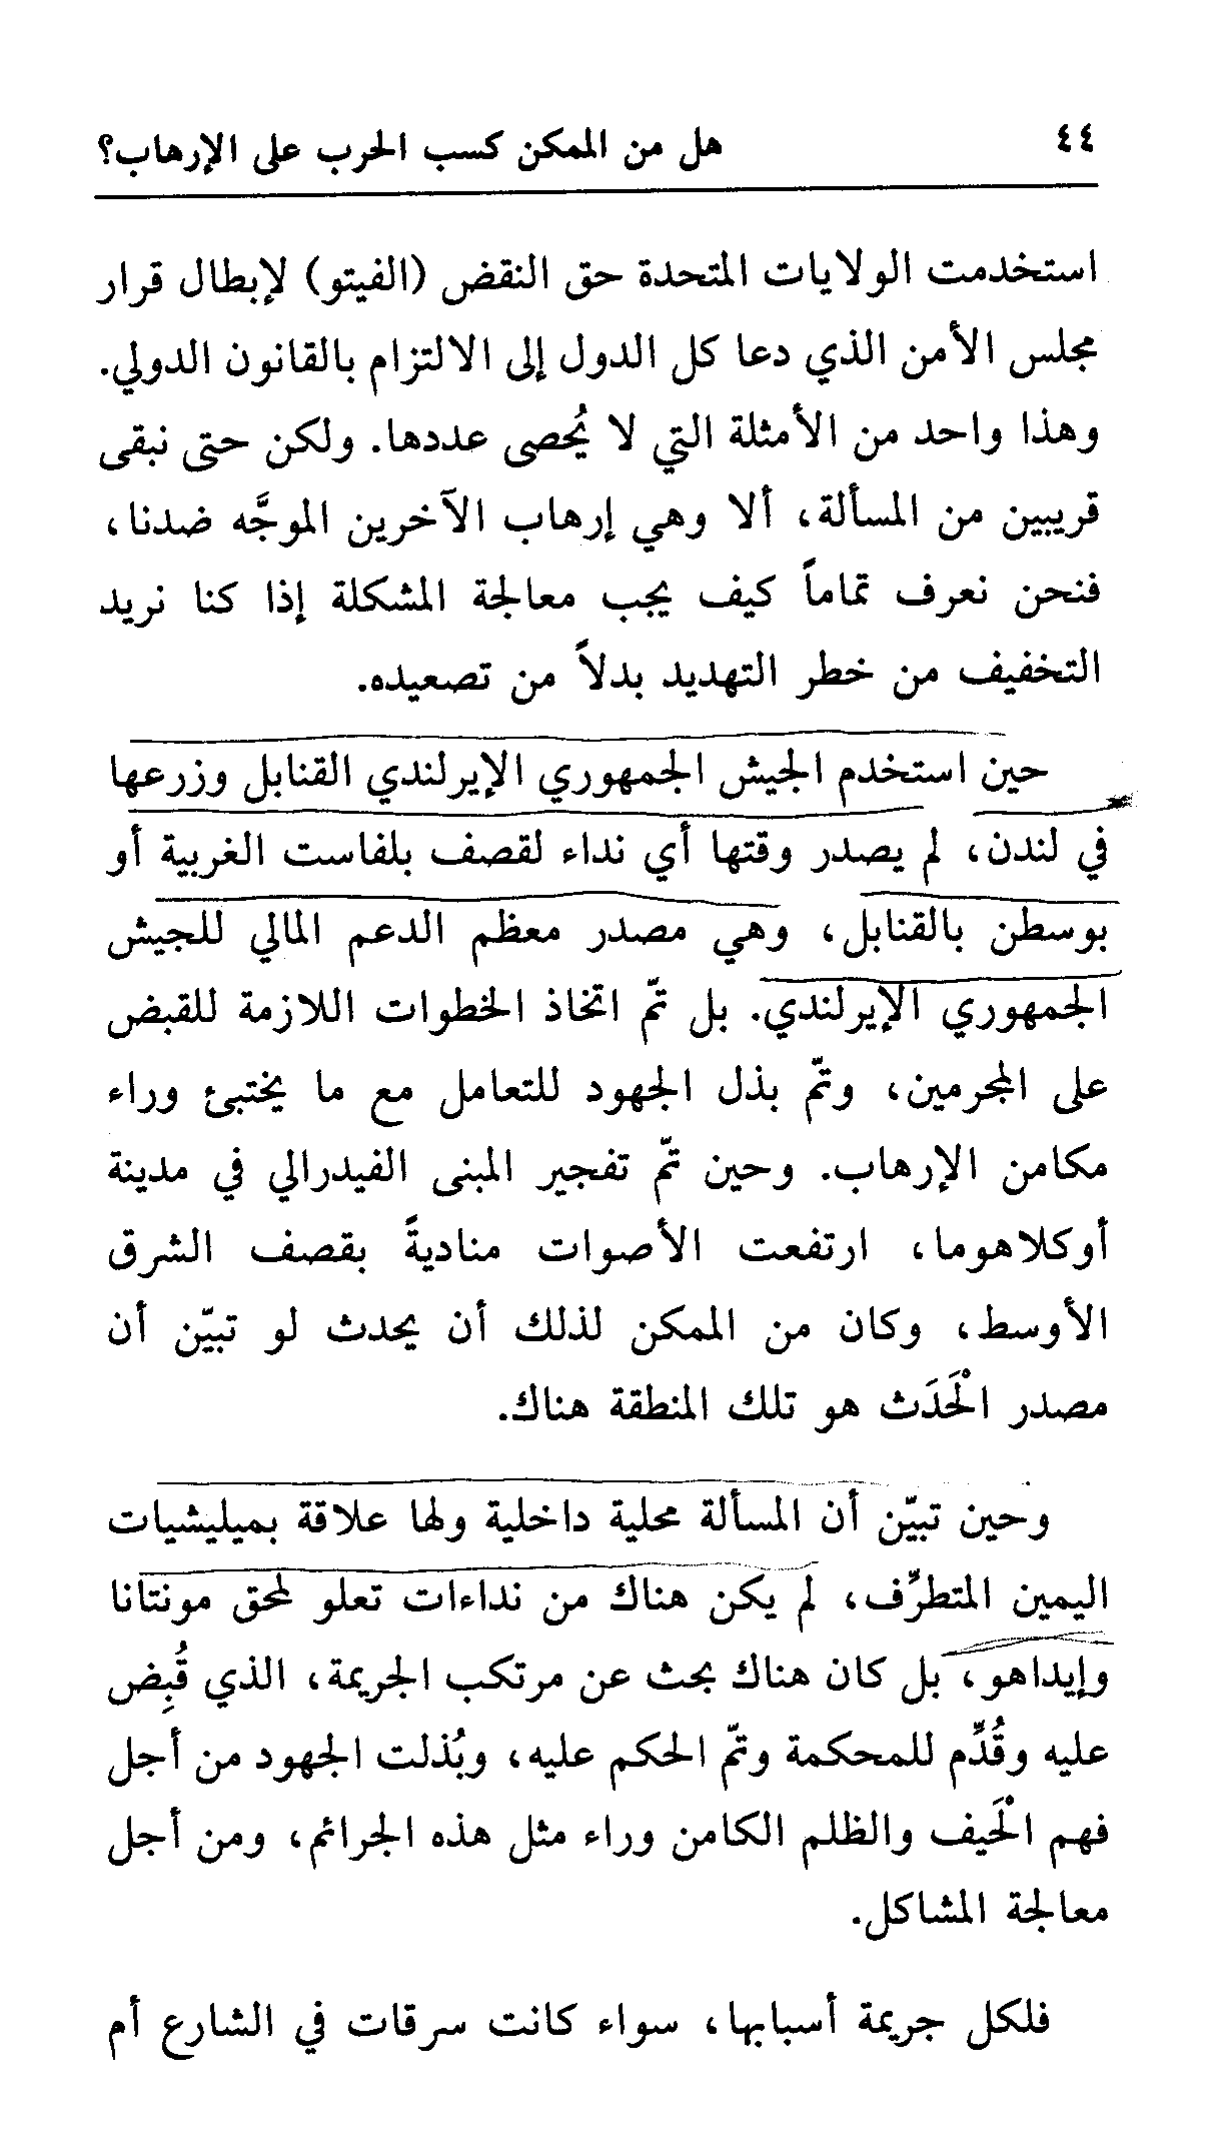 ٤٤
هل من الممكن كسب الحرب على الإرهاب؟
استخدمت الولايات المتحدة حق النقض (الفيتو) لإبطال قرار
مجلس الأمن الذي دعا كل الدول إلى الالتزام بالقانون الدولي.
وهذا واحد من الأمثلة التي لا يُحصى عددها. ولكن حتى نبقى
قريبين من المسألة، ألا وهي إرهاب الآخرين الموجَّه ضدنا،
فنحن نعرف تماماً كيف يجب معالجة المشكلة إذا كنا نريد
التخفيف من خطر التهديد بدلاً من تصعيده.
حين استخدم الجيش الجمهوري الإيرلندي القنابل وزرعها
في لندن، لم يصدر وقتها أي نداء لقصف بلفاست الغربية أو
بوسطن بالقنابل، وهي مصدر معظم الدعم المالي للجيش
الجمهوري الإيرلندي. بل تمّ اتخاذ الخطوات اللازمة للقبض
على المجرمين، وتمّ بذل الجهود للتعامل مع ما يختبئ وراء
مكامن الإرهاب. وحين تمّ تفجير المبنى الفيدرالي في مدينة
أوكلاهوما، ارتفعت الأصوات مناديةً بقصف الشرق
الأوسط، وكان من الممكن لذلك أن يحدث لو تبيّن أن
مصدر الْحَدَث هو تلك المنطقة هناك.
وحين تبيّن أن المسألة محلية داخلية ولها علاقة بميليشيات
اليمين المتطرِّف، لم يكن هناك من نداءات تعلو لمحق مونتانا
وإيداهو، بل كان هناك بحث عن مرتكب الجريمة، الذي قُبِض
عليه وقُدِّم للمحكمة وتمّ الحكم عليه، وبُذلت الجهود من أجل
فهم الْحَيف والظلم الكامن وراء مثل هذه الجرائم، ومن أجل
معالجة المشاكل.
فلكل جريمة أسبابها، سواء كانت سرقات في الشارع أم